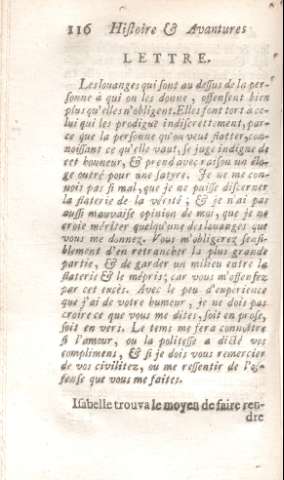 116 Histoire & Avantures
LETTRE.
Les louanges qui sont au dessus de la per-
sonne à qui on les donne, offensent bien
plus qu'elles n'obligent. Elles font tort à ce-
lui qui les prodigue indiscrétement, par-
ce que la personne qu'on veut flatter, con-
noissant ce qu'elle vaut, se juge indigne de
cet honneur, & prend avec raison un élo-
ge outré pour une satyre. Je ne me con-
nois pas si mal, que je ne puisse discerner
la flaterie de la vérité; & je n'ai pas
aussi mauvaise opinion de moi, que je ne
croie mériter quelqu'une des louanges que
vous me donnez. Vous m'obligerez sensi-
blement d'en retrancher la plus grande
partie, & de garder un milieu entre la
flaterie & le mépris; car vous m'offensez
par cet excès. Avec le peu d'experience
que j'ai de votre humeur, je ne dois pas
croire ce que vous me dites, soit en prose,
soit en vers. Le tems me fera connoître
si l'amour, ou la politesse a dicté vos
complimens, & si je dois vous remercier
de vos civilitez, ou me ressentir de l'of-
fense que vous me faites.
Isabelle trouva le moyen de faire ren-
dre